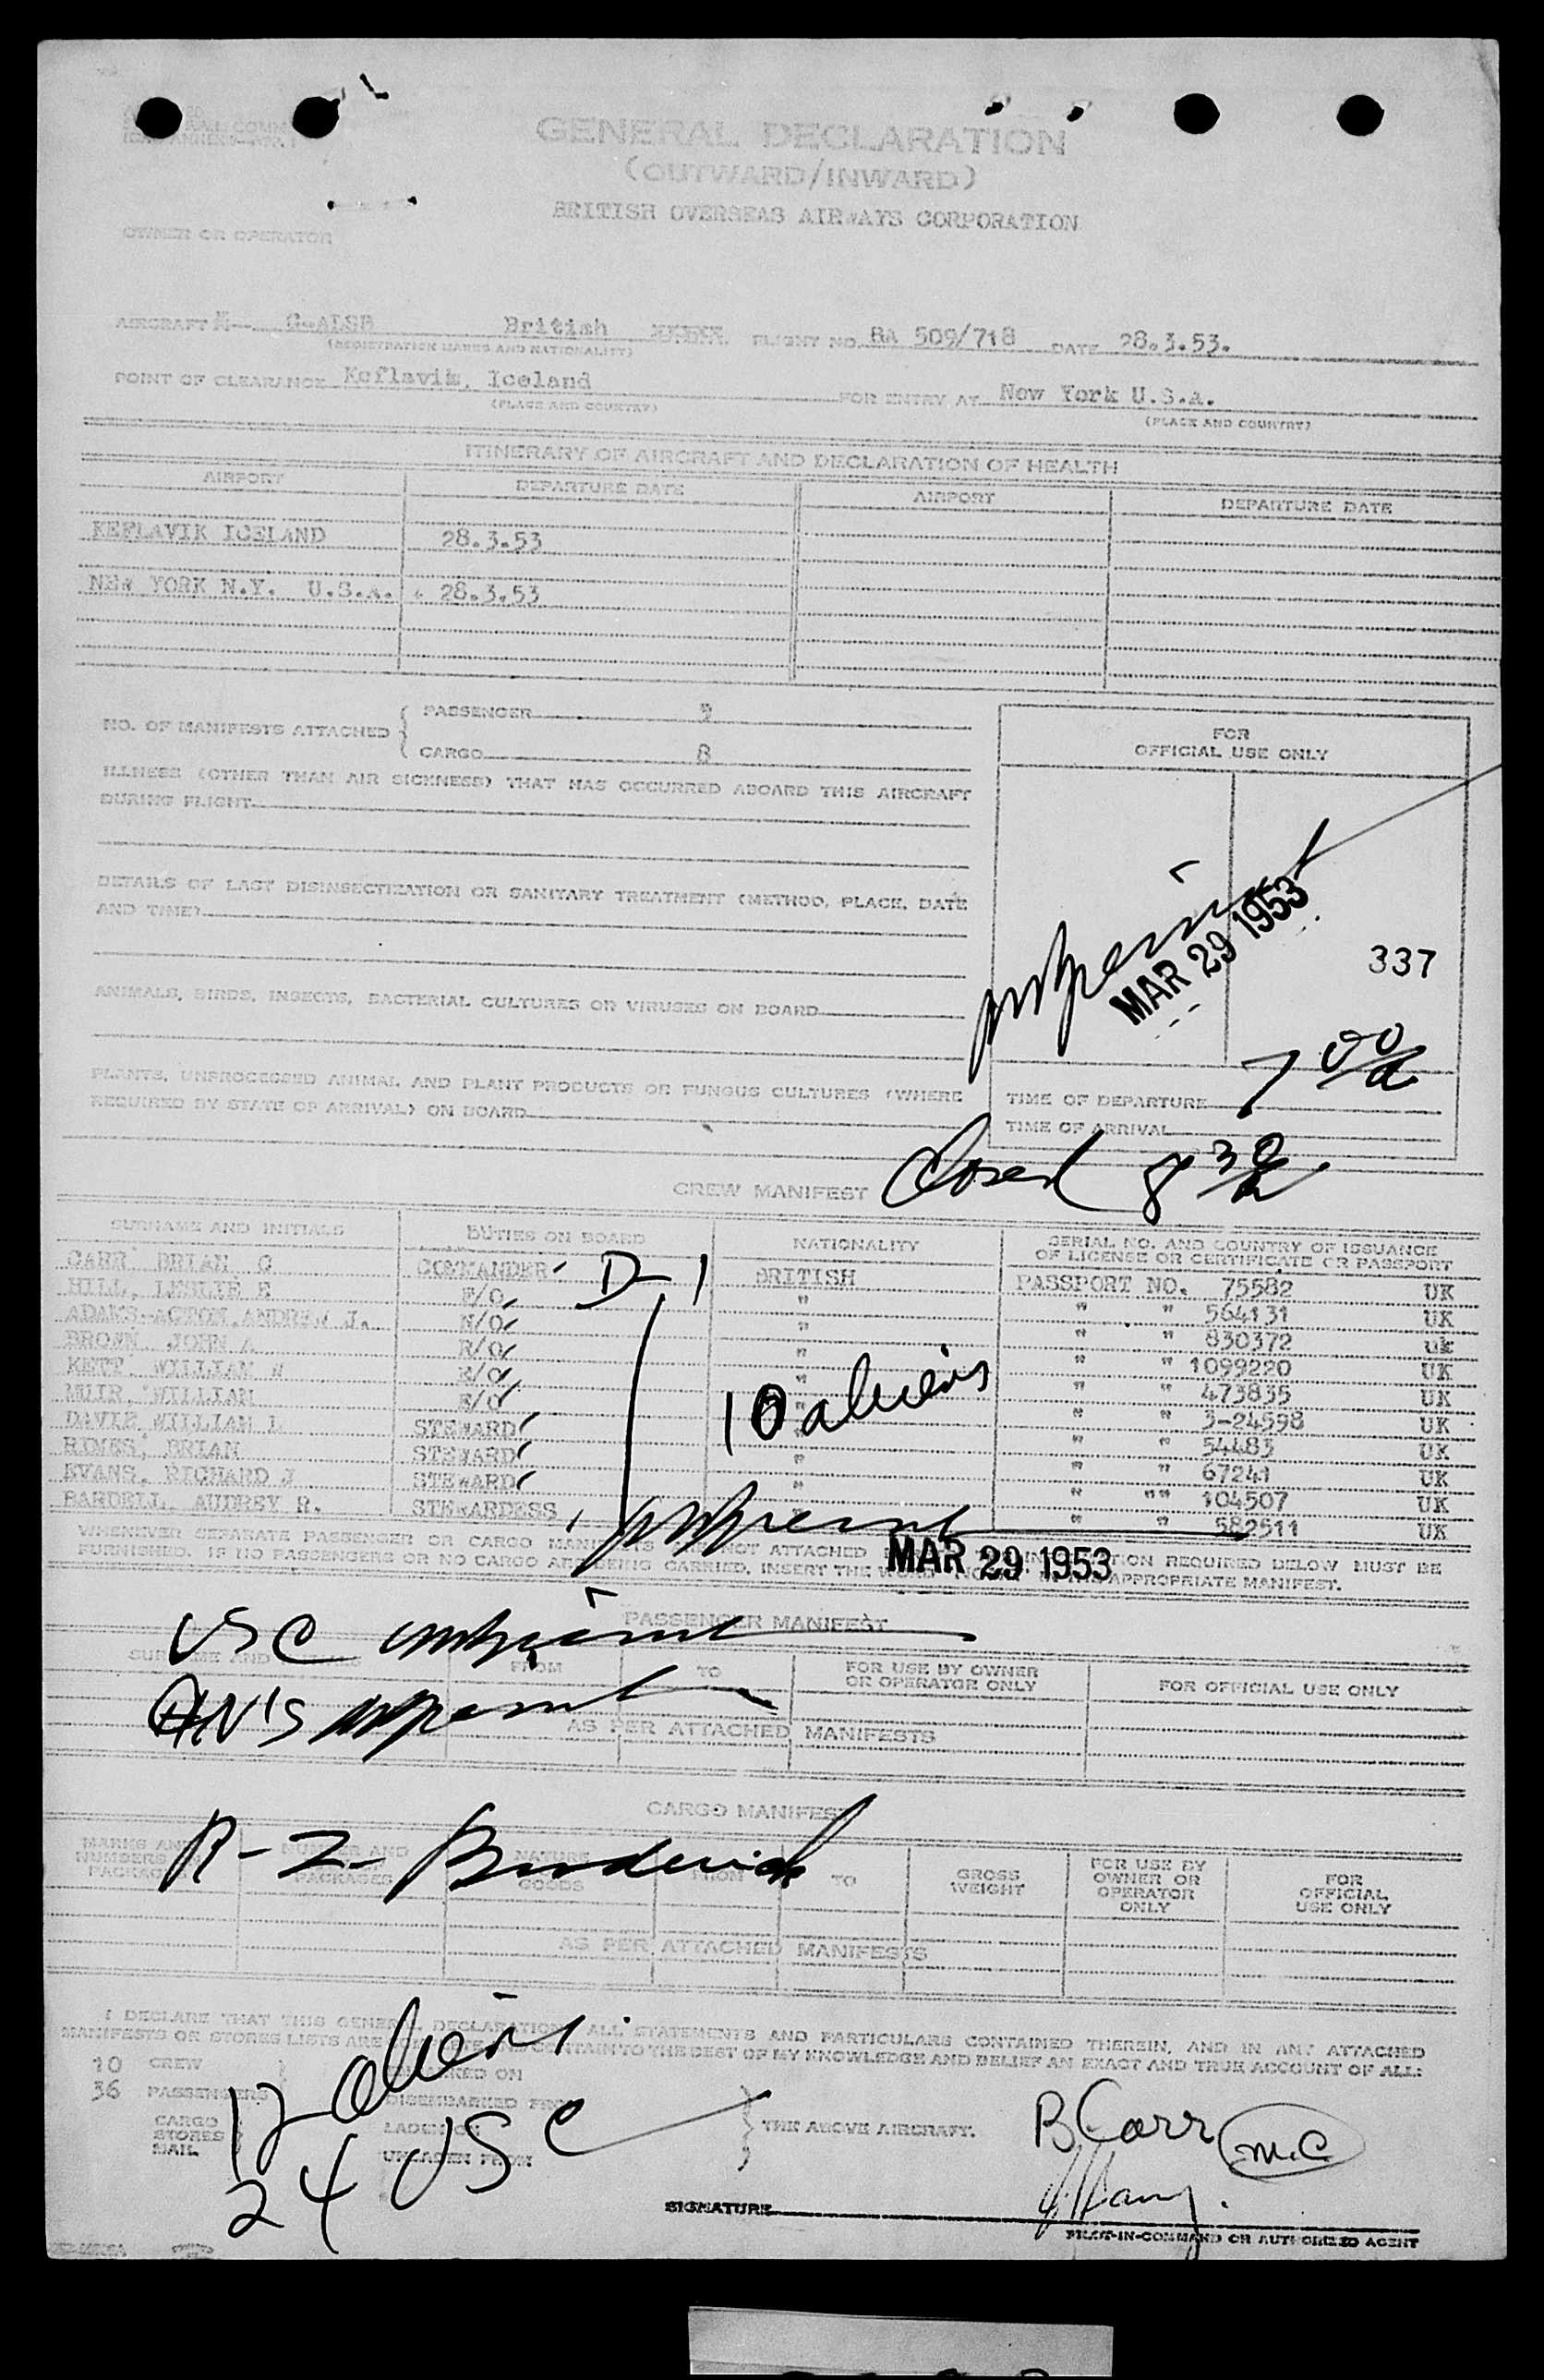 GENERAL DECLARATION
(OUTWARD/INWARD)
BRITISH OVERSEAS AIRWAYS CORPORATION
OWNER OR OPERATOR
AIRCRAFT G-ALSB British FLIGHT NO. BA 509/718 DATE 28.3.53.
(REGISTRATION MARKS AND NATIONALITY)
POINT OF CLEARANCE Keflavik, Iceland FOR ENTRY AT New York U.S.A.
(PLACE AND COUNTRY) (PLACE AND COUNTRY)
ITINERARY OF AIRCRAFT AND DECLARATION OF HEALTH
AIRPORT DEPARTURE DATE AIRPORT DEPARTURE DATE
KEFLAVIK ICELAND 28.3.53
NEW YORK N.Y. U.S.A. 28.3.53
NO. OF MANIFESTS ATTACHED
PASSENGER
CARGO 8
FOR
OFFICIAL USE ONLY
ILLNESS (OTHER THAN AIR SICKNESS) THAT HAS OCCURRED ABOARD THIS AIRCRAFT
DURING FLIGHT
DETAILS OF LAST DISINSECTIZATION OR SANITARY TREATMENT (METHOD, PLACE, DATE
AND TIME)
MAR 29 1953
337
ANIMALS, BIRDS, INSECTS, BACTERIAL CULTURES OR VIRUSES ON BOARD
PLANTS, UNPROCESSED ANIMAL AND PLANT PRODUCTS OR FUNGUS CULTURES (WHERE
REQUIRED BY STATE OF ARRIVAL) ON BOARD
TIME OF DEPARTURE 7 00/a
TIME OF ARRIVAL
Closed 8 30/a
CREW MANIFEST
SURNAME AND INITIALS DUTIES ON BOARD NATIONALITY SERIAL NO. AND COUNTRY OF ISSUANCE
OF LICENSE OR CERTIFICATE OR PASSPORT
CARR BRIAN G COMMANDER D-1 BRITISH PASSPORT NO. 75582 UK
HILL, LESLIE E F/O " " " 564131 UK
ADAMS-ACTON, ANDREW J. N/O " " " 830372 uk
BROWN JOHN A R/O " " " 1099220 UK
KETT, WILLIAM W E/O " " " 473835 UK
MUIR, WILLIAM E/O " " " 3-24598 UK
10 aliens
DAVIS, WILLIAM L STEWARD " " " 54483 UK
RIMES, BRIAN STEWARD " " " 67241 UK
EVANS, RICHARD J STEWARD " " "" 104507 UK
BARDELL, AUDREY R. STEWARDESS " " 582511 UK
WHENEVER SEPARATE PASSENGER OR CARGO NOT ATTACHED REQUIRED BELOW MUST BE
FURNISHED. IF NO PASSENGERS OR NO CARGO ARE BEING CARRIED, INSERT THE APPROPRIATE MANIFEST.
MAR 29 1953
PASSENGER MANIFEST
USC
FROM TO FOR USE BY OWNER
OR OPERATOR ONLY FOR OFFICIAL USE ONLY
AS PER ATTACHED MANIFESTS
CARGO MANIFEST
R-2-
MARKS AND
NUMBERS
PACKAGES
PACKAGES
NATURE
GOODS
FROM
TO
GROSS
WEIGHT
FOR USE BY
OWNER OR
OPERATOR
ONLY
FOR
OFFICIAL
USE ONLY
AS PER ATTACHED MANIFESTS
I DECLARE THAT THIS GENERAL DECLARATION ALL STATEMENTS AND PARTICULARS CONTAINED THEREIN, AND IN ANY ATTACHED
MANIFESTS OR STORES LISTS ARE TO THE BEST OF MY KNOWLEDGE AND BELIEF AN EXACT AND TRUE ACCOUNT OF ALL:
10 CREW
36 PASSENGERS
CARGO
STORES
MAIL
DISEMBARKED FROM
LADEN ON
UNLADEN FROM
THE ABOVE AIRCRAFT.
12 aliens
24 USC
B Carr
M.C.
SIGNATURE
PILOT-IN-COMMAND OR AUTHORIZED AGENT